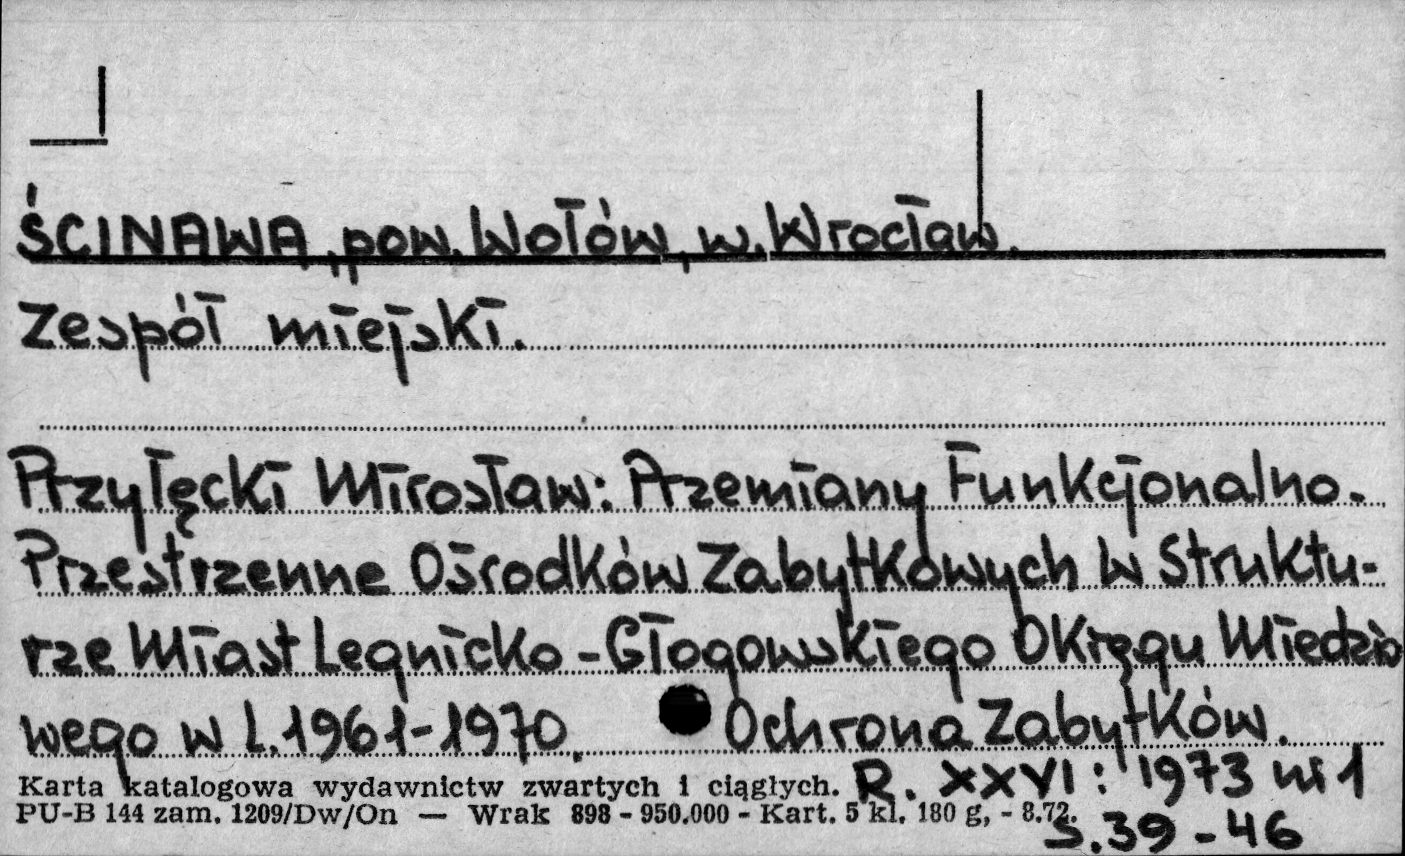 ŚCINAWA, pow. Wołów, w. Wrocław.
Zespół miejski.
Przyłęcki Mirosław: Przemiany Funkcjonalno-
Przestrzenne Ośrodków Zabytkowych w Struktu-
rze Miast Legnicko-Głogowskiego Okręgu Miedzio
wego w l. 1961-1970. Ochrona Zabytków.
R. XXVI: 1973 nr 1
s. 39-46
Karta katalogowa wydawnictw zwartych i ciągłych.
PU-B 144 zam. 1209/Dw/On — Wrak 898 - 950.000 - Kart. 5 kl. 180 g, - 8.72.